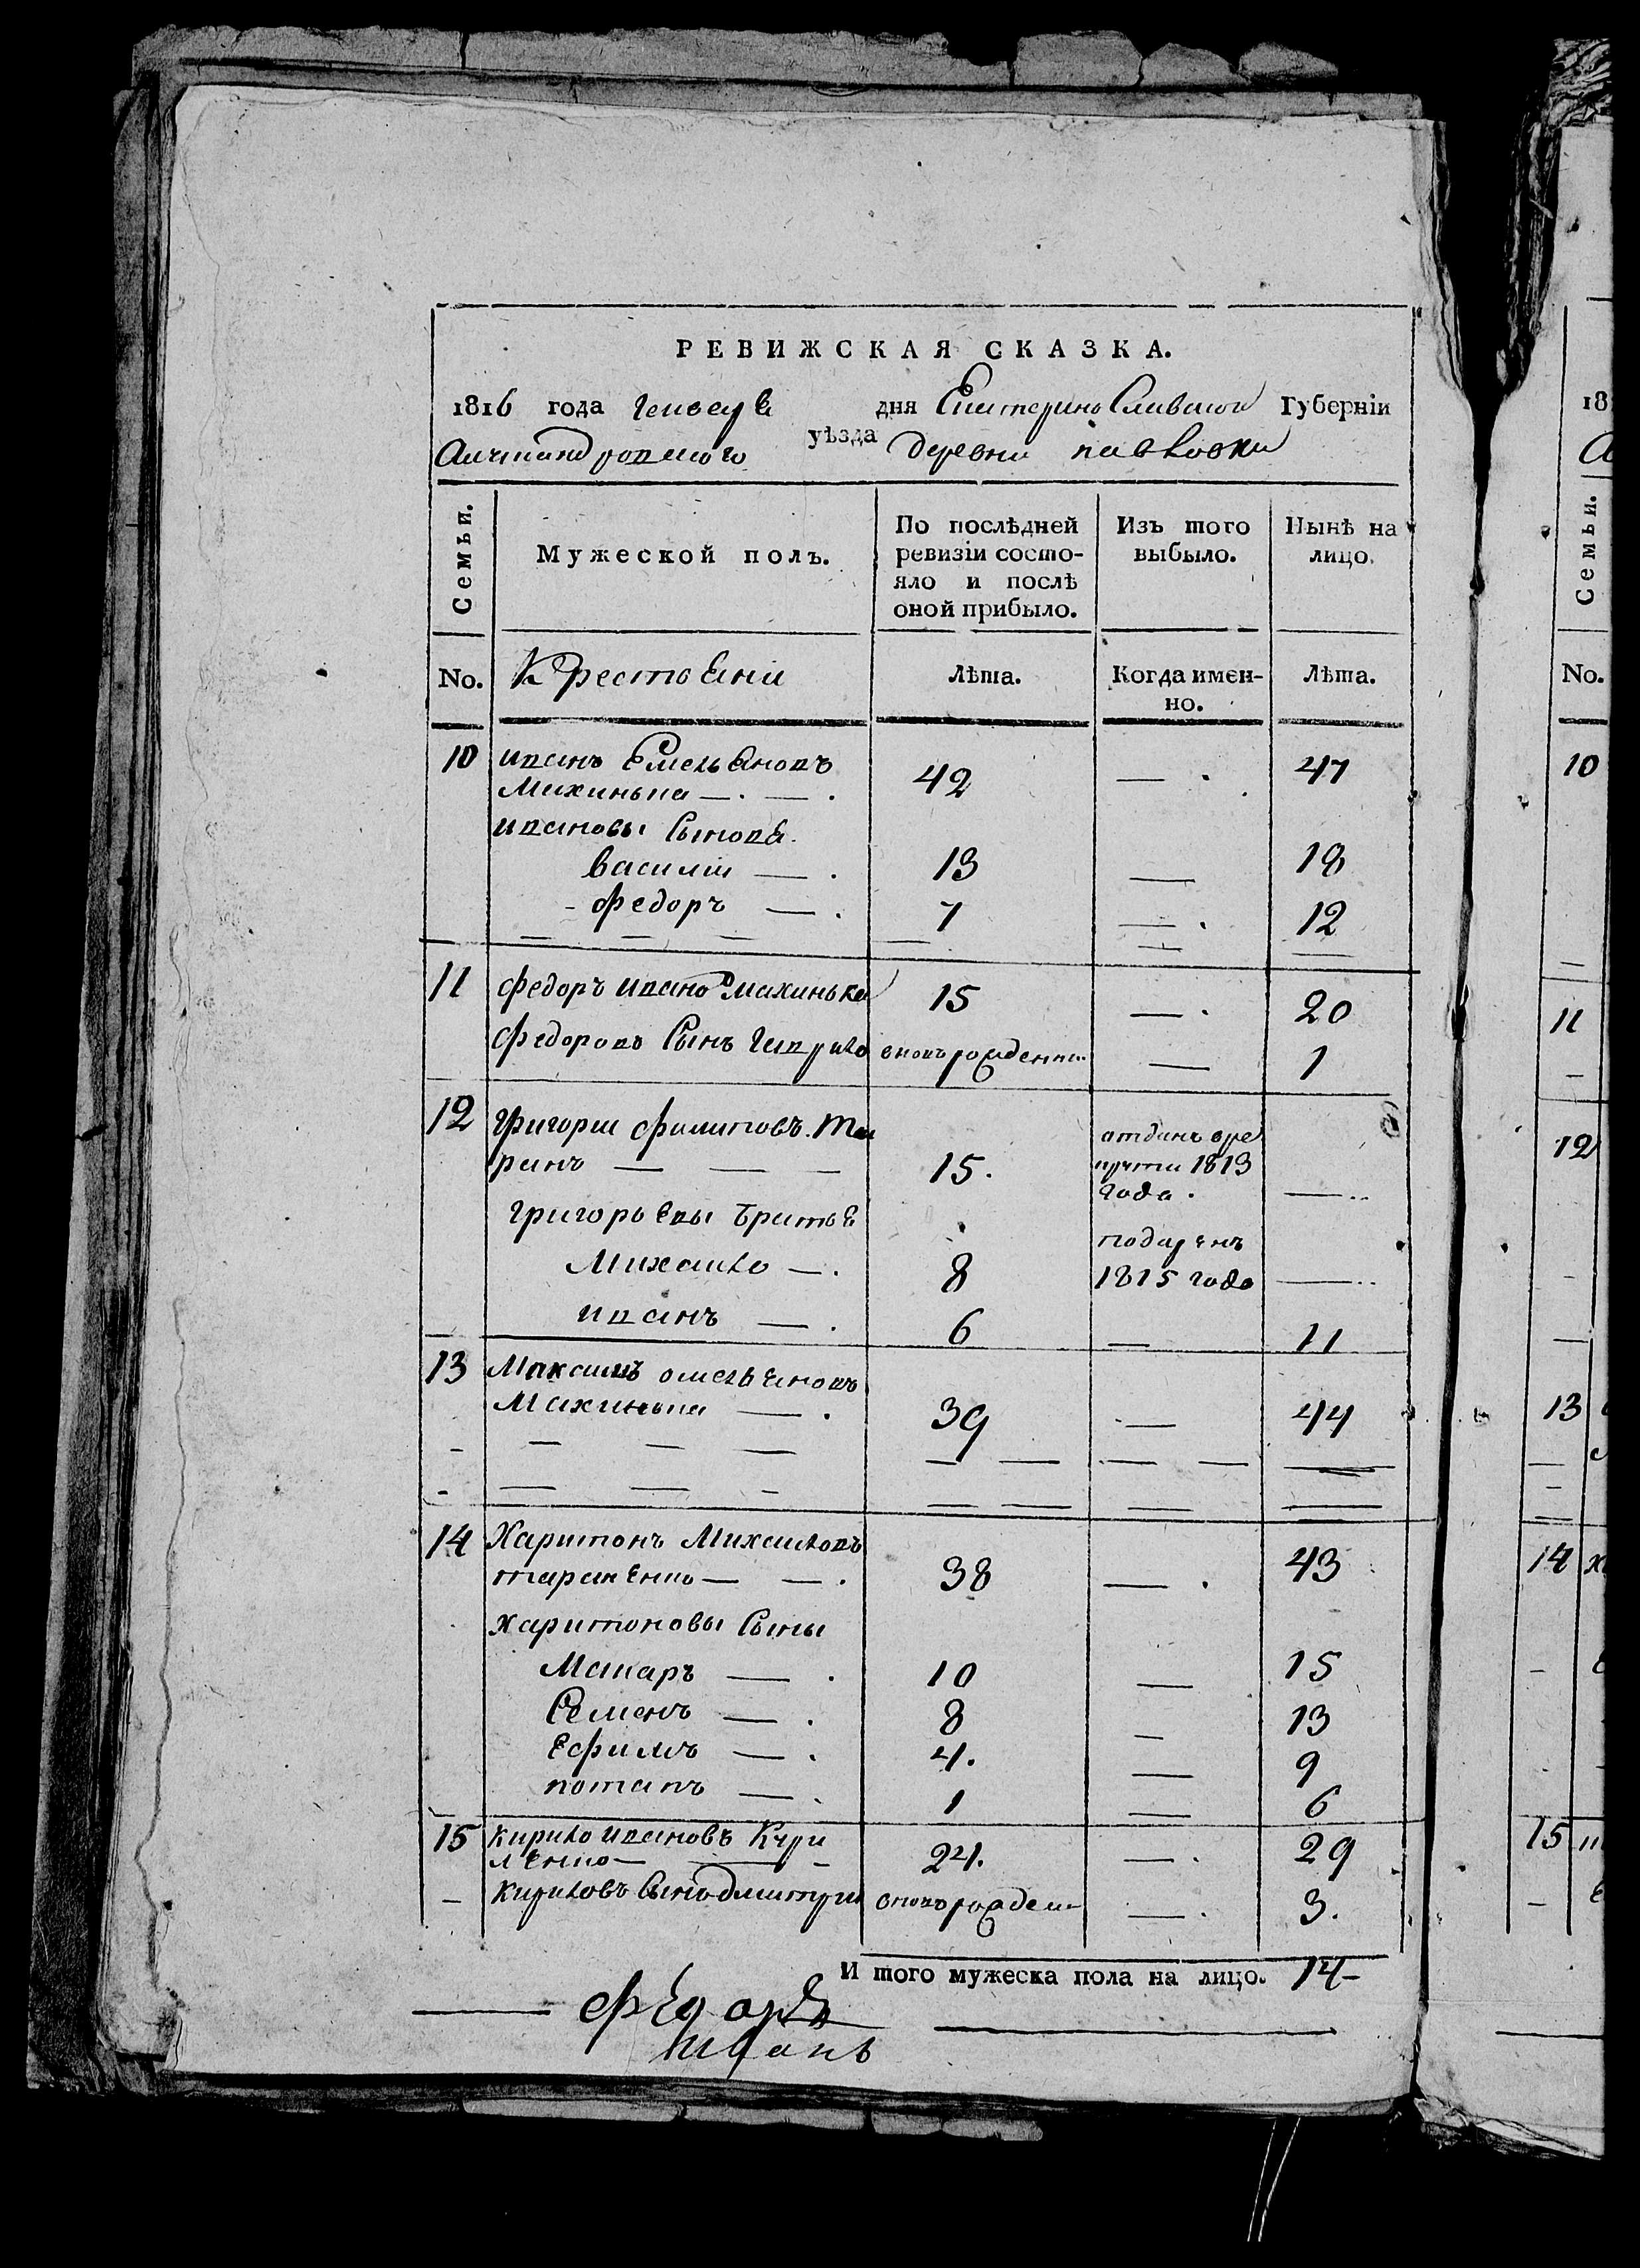 РЕВИЖСКАЯ СКАЗКА.
1816 года Генваря дня Екатеринославской Губерніи
Александровского уѣзда деревни павловки
Семьи. Мужеской полъ. По послѣдней ревизіи состояло и послѣ оной прибыло. Изъ того выбыло. Нынѣ на лицо.
No. Крестьяни Лѣта. Когда именно. Лѣта.
10 иванъ Емельяновъ
Махинька — . — . 42 — . 47
ивановы Сыновя.
василіи — . 13 — 18
федоръ — . 7 — . 12
11 федоръ ивано махинька 15 — . 20
федоровъ Сынъ гаврило вновь рожденни — 1
12 григори филиповъ. Та
ранъ — — — 15. отданъ врекруты 1813 года . — ..
григорьевы братья
Михаило — . 8 подаренъ 1815 года — ..
иванъ — . 6 — 11
13 Максимъ омельяновъ
Махинька — . 39 — 44
14 Харитонъ Михаиловъ
тараненко — — . 38 — . 43
харитоновы Сыны
Макаръ — . 10 — 15
Семенъ — . 8 — 13
Ефимъ — . 4. — 9
потапъ — . 1 — 6
15 кирило ивановъ Кури
ленко — — 24. — . 29
кириловъ Сынъ дмитри вновь рожден — . 3.
И того мужеска пола на лицо. 14 —
федоръ
Иванъ
18
Семьи.
No.
10
11
12
13
14
15